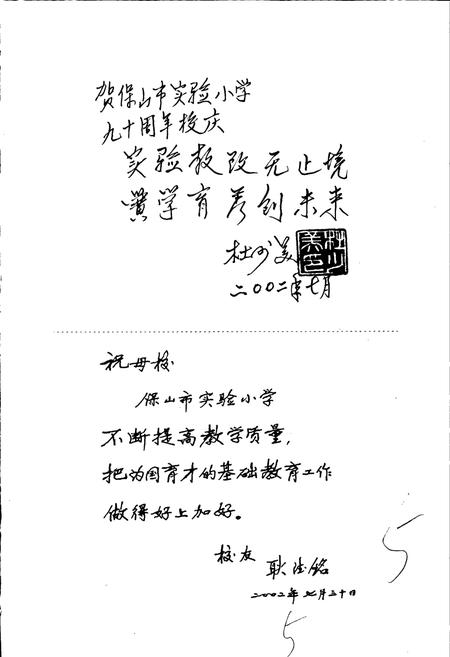 贺保山市实验小学
九十周年校庆
实验教改无止境
黉学育秀创未来
杜少美
二〇〇二年七月
祝母校
保山市实验小学
不断提高教学质量，
把为国育才的基础教育工作
做得好上加好。
校友
耿德铭
二〇〇二年七月三十日
5
5